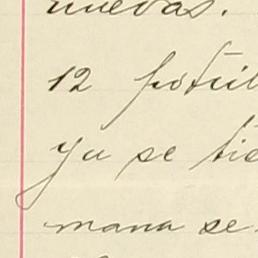 nuevas.
12 fotíl
ya se tie
mana se